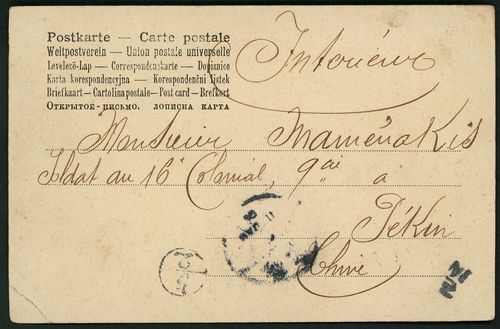 Postkarte — Carte postale
Weltpostverein — Union postale universelle
Levelező-Lap — Correspondenzkarte — Dopisnice
Karta korespondencyjna — Korespondenční lístek
Briefkaart — Cartolina postale — Post card — Brefkort
ОТКРЫТОЕ-ПИСЬМО. ДОПИСНА КАРТА
Intérieur
Monsieur Maménakis
Soldat au 16e Colonial, 9e
à
Pékin
Chine